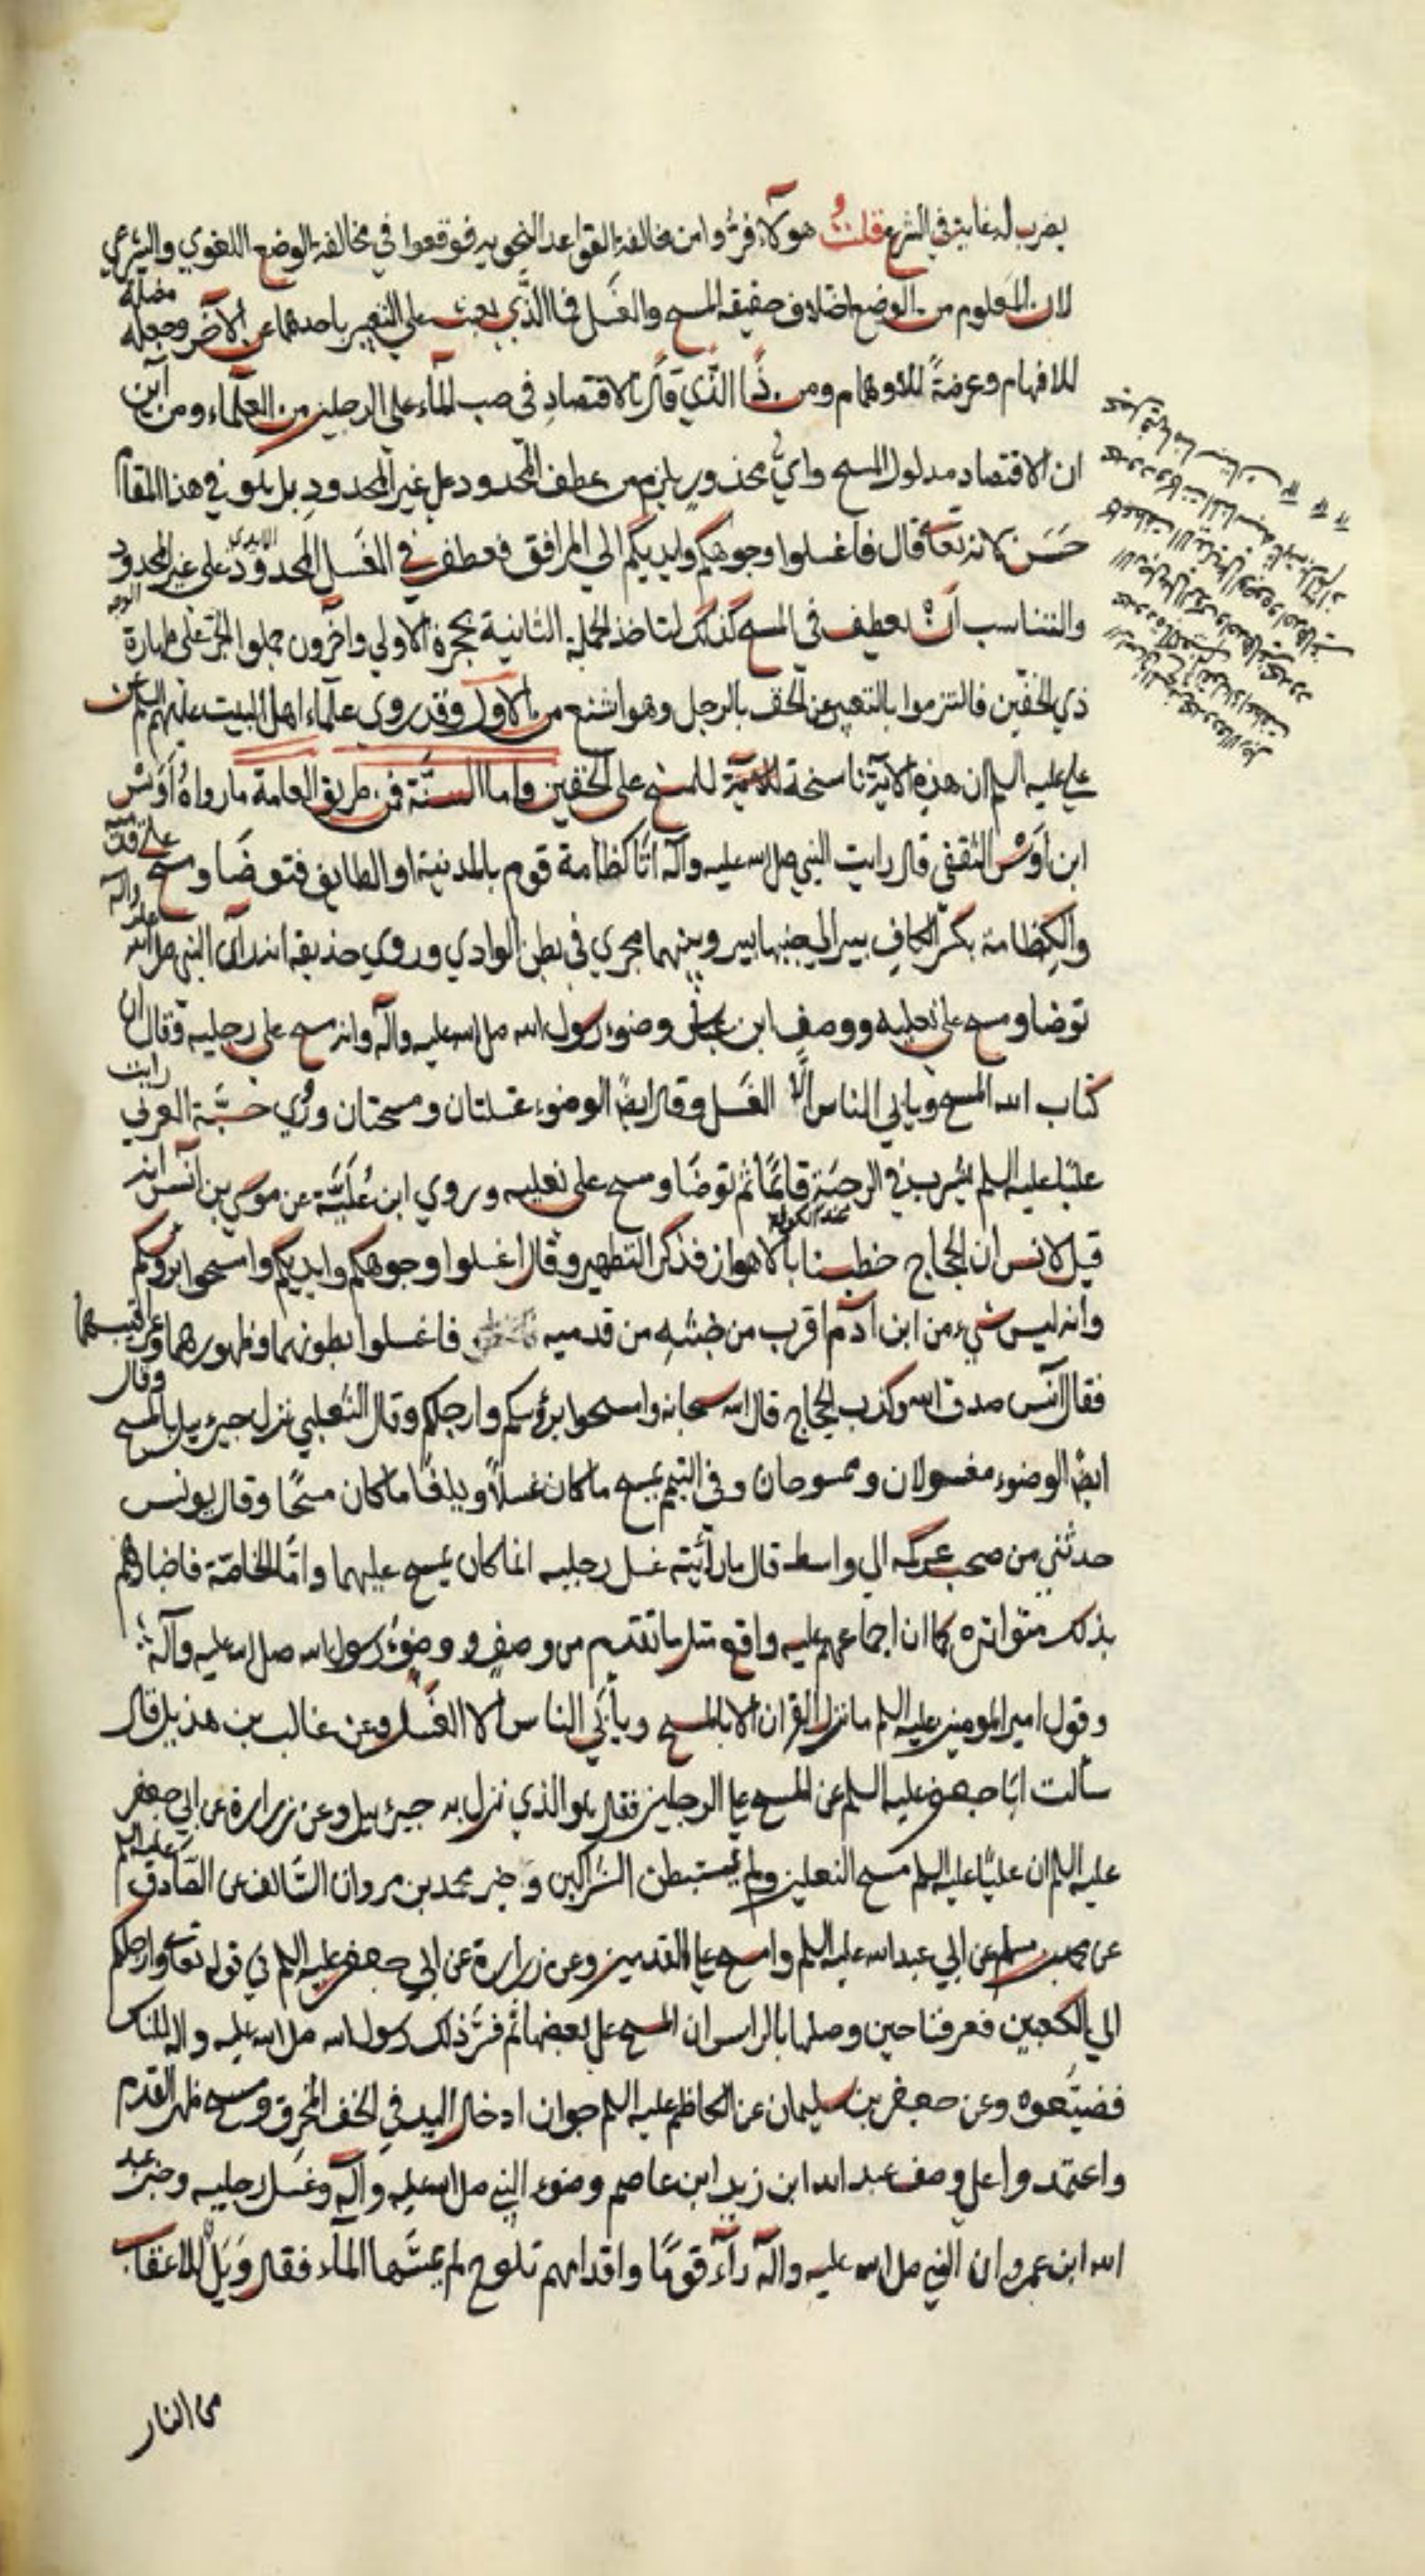 يضرب له غاية في الشرع قلت هؤلآء فرّوا من مخالفة القواعد النحويه فوقعوا في مخالفة الوضع اللغوي والشرعي
لان المعلوم من الوضع اختلاف حقيقة المسح والغسل فما الذّي يبعث على التعبير باحدهما عن الآخر وجعله مضلة
للافهام وعرضةً للاوهام ومن ذا الذّي قال بالاقتصاد في صب المآء على الرجلين من العلمآء ومن اين
ان الاقتصاد مدلول المسح وايّ محذور يلزم من عطف المحدود على غير المحدود بل هو في هذا المقام
حَسَن لانه تعا قال فاغسلوا وجوهكم وايديكم الي المرافق فعطف في الغَسل المحدود الايدي على غير المحدود الوجه
والتناسب أن يعطف في المسح كذلك لتاخذ الجملة الثانية بحجزة الاولي واخرون حملوا الجرّ على طهارة
ذي الخفّين فالتزموا بالتعبير عن الخف بالرجل وهو اشنع من الاول وقد روي علمآء اهل البيت عليهم السلم عن
علي عليه السلم ان هذه الآية ناسخة للمسح على الخفين واما السنّة فمن طريق العامة ما رواه أوس
ابن أوس الثقفي قال رايت النبي صلى الله عليه وآله اتا كظامة قوم بالمدينة او الطايف فتوضا ومسح على قدميه
والكِظامة بكسر الكاف بير الي جنبها بير وبينهما مجري في بطن الوادي وروي حذيفة انه رآى النبي صلى الله عليه وآله
توضا ومسح على نعليه ووصف ابن عباس وضوء رسول الله صلى الله عليه وآله وانه مسح على رجليه وقال ان
كتاب الله المسح ويابي الناس الّا الغسل وقال ايضا الوضوء غسلتان ومسحتان وروي حبّة العرني رايت
عليّا عليه السلم يشرب في الرحبة قائمًا ثم توضّا ومسح على نعليه وروي ابن عُليَّة عن موسي بن أنس انه
قيل لانس ان الحجاج خطبنا بالاهواز فذكر التطهير وقال اغسلوا وجوهكم وايديكم وامسحوا برؤسكم
وانه ليس شيء من ابن آدم اقرب من خبثه من قدميه فاغسلوا بطونهما وظهورهما وعراقيبهما
فقال آنس صدق الله وكذب الحجاج قال الله سبحانه وامسحوا برؤسكم وارجلكم وقال الشعبي نزل جبرئيل بالمسح وقال
ايضا الوضوء مغسولان وممسوحان وفي التيمم يمسح ما كان غسلاً ويلغا ما كان مسحًا وقال يونس
حدثني من صحب عكرمه الي واسط قال ما رأيته غسل رجليه انما كان يمسح عليهما وامّا الخاصّة فاخبارهم
بذلك متواتره كما ان اجماعهم عليه واقع مثل ما تقدم من وصف وضوء رسول الله صلى الله عليه وآله
وقول امير المومنين عليه السلم ما نزل القران الا بالمسح ويأبي الناس الا الغسل وعن غالب بن هذيل قال
سألت ابا جعفر عليه السلم عن المسح على الرجلين فقال هو الذي نزل به جبرئيل وعن زرارة عن ابي جعفر
عليه السلم ان عليًّا عليه السلم مسح النعلين ولم يستبطن الشراكين وخبر محمد بن مروان السّالف عن الصّادق عليه السلم
عن محمد بن مسلم عن ابي عبد الله عليه السلم وامسح على القدمين وعن زرارة عن ابي جعفر عليه السلم في قوله تعا وارجلكم
الي الكعبين فعرفنا حين وصلها بالراس ان المسح على بعضها ثم فسّر ذلك رسول الله صلى الله عليه واله للناس
فضيّعوه وعن جعفر بن سليمان عن الكاظم عليه السلم جواز ادخال اليد في الخف المخرق ومسح ظهر القدم
واعتمدوا على وصف عبد الله ابن زيد ابن عاصم وضوء النبي صلى الله عليه وآله وغسل رجليه وخبر عبد
الله ابن عمرو ان النبي صلى الله عليه وآله رآء قومًا واقدامهم تلوح لم يمسّها المآء فقال ويل للاعقاب
من النار